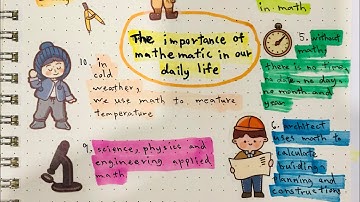 in math
The importance of
mathematic in our
daily life
5. without
maths
there is no time,
no date, no days
no month and
year
10. In
cold
weather,
we use math to meature
temperature
9. science, physics and
engineering applied
math
6. architect
uses math to
calculate
buiding
planning and
constructions